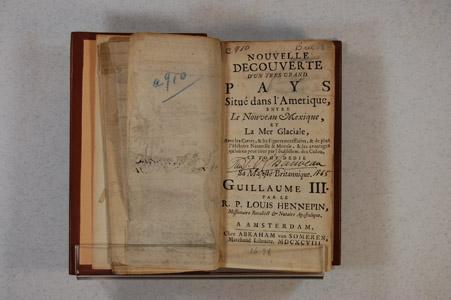 a910
C 910
NOUVELLE
DECOUVERTE
D'UN TRES GRAND
PAYS
Situé dans l'Amerique,
ENTRE
Le Nouveau Mexique,
ET
La Mer Glaciale,
Avec les Cartes, & les Figures necessaires, & de plus
l'Histoire Naturelle & Morale, & les avantages
qu'on en peut tirer par l'établissem. des Colon.
LE TOUT DEDIE
à
Sa Majesté Britannique.
1865
GUILLAUME III.
PAR LE
R. P. LOUIS HENNEPIN,
Missionaire Recollect & Notaire Apostolique,
A AMSTERDAM,
Chez ABRAHAM van SOMEREN,
Marchand Libraire. MDCXCVIII.